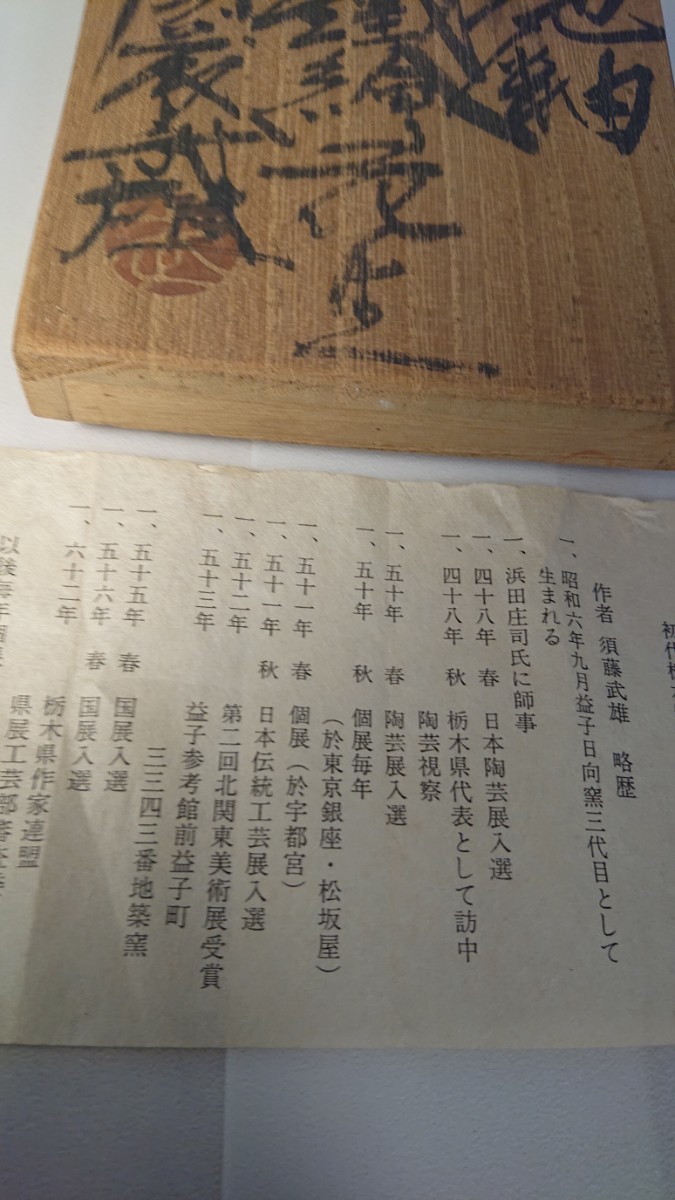 地釉
白
武雄
初代
作者 須藤武雄 略歴
一、昭和六年九月益子日向窯三代目として
生まれる
一、浜田庄司氏に師事
一、四十八年 春 日本陶芸展入選
一、四十八年 秋 栃木県代表として訪中
陶芸視察
一、五十年 春 陶芸展入選
一、五十年 秋 個展毎年
（於東京銀座・松坂屋）
一、五十一年 春 個展（於宇都宮）
一、五十一年 秋 日本伝統工芸展入選
一、五十二年 第二回北関東美術展受賞
一、五十三年 益子参考館前益子町
三三四三番地築窯
一、五十五年 春 国展入選
一、五十六年 春 国展入選
一、六十二年 栃木県作家連盟
県展工芸部審査
以後毎年個展